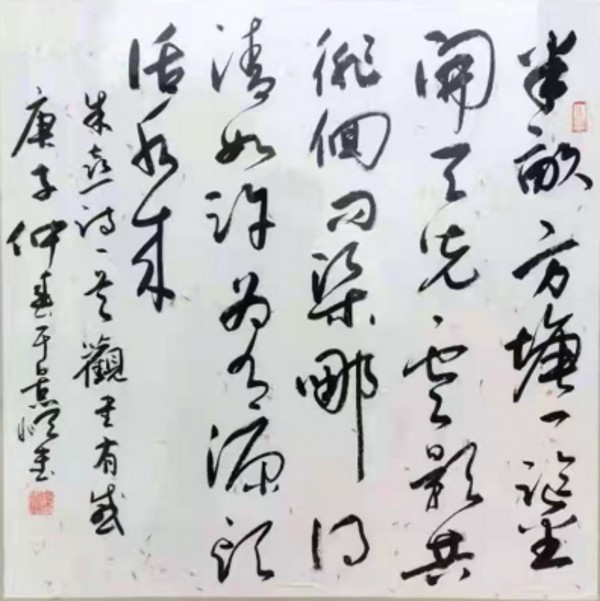 半畝方塘一鉴
開天光雲影共
徘徊问渠哪得
清如许为有源头
活水来
朱熹诗一首觀书有感
庚子仲春于京书